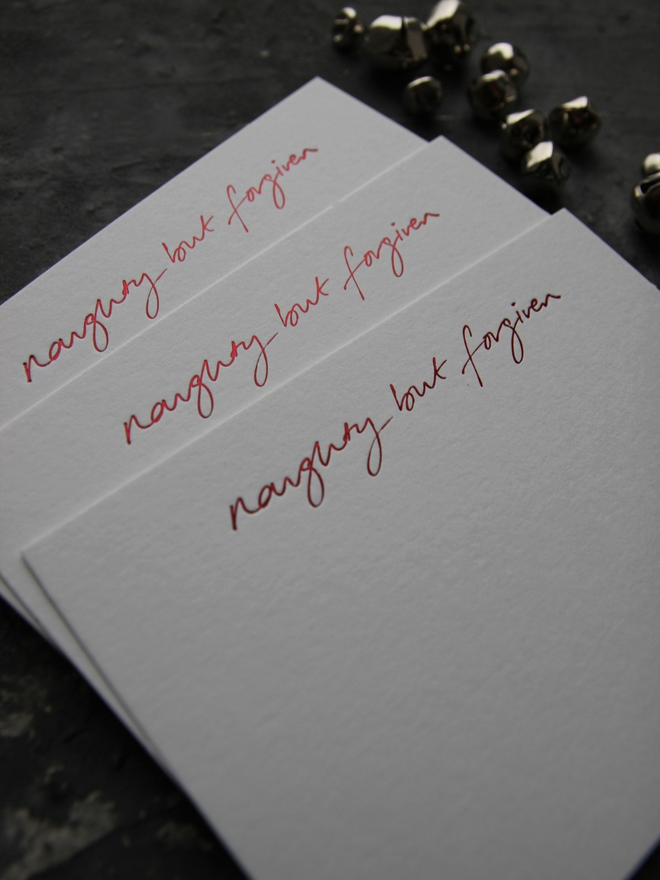 naughty but forgiven
naughty but forgiven
naughty but forgiven